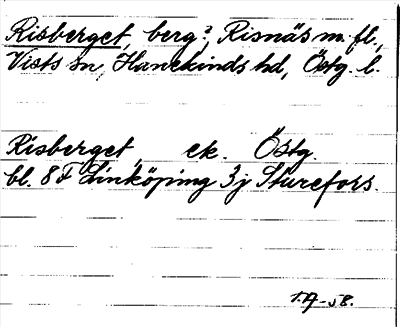 Risberget, berg? Risnäs m. fl.,
Vists sn, Hanekinds hd, Östg. l.
Risberget, ek. Östg.
bl. 8 F Linköping 3j Sturefors.
T.A -58.